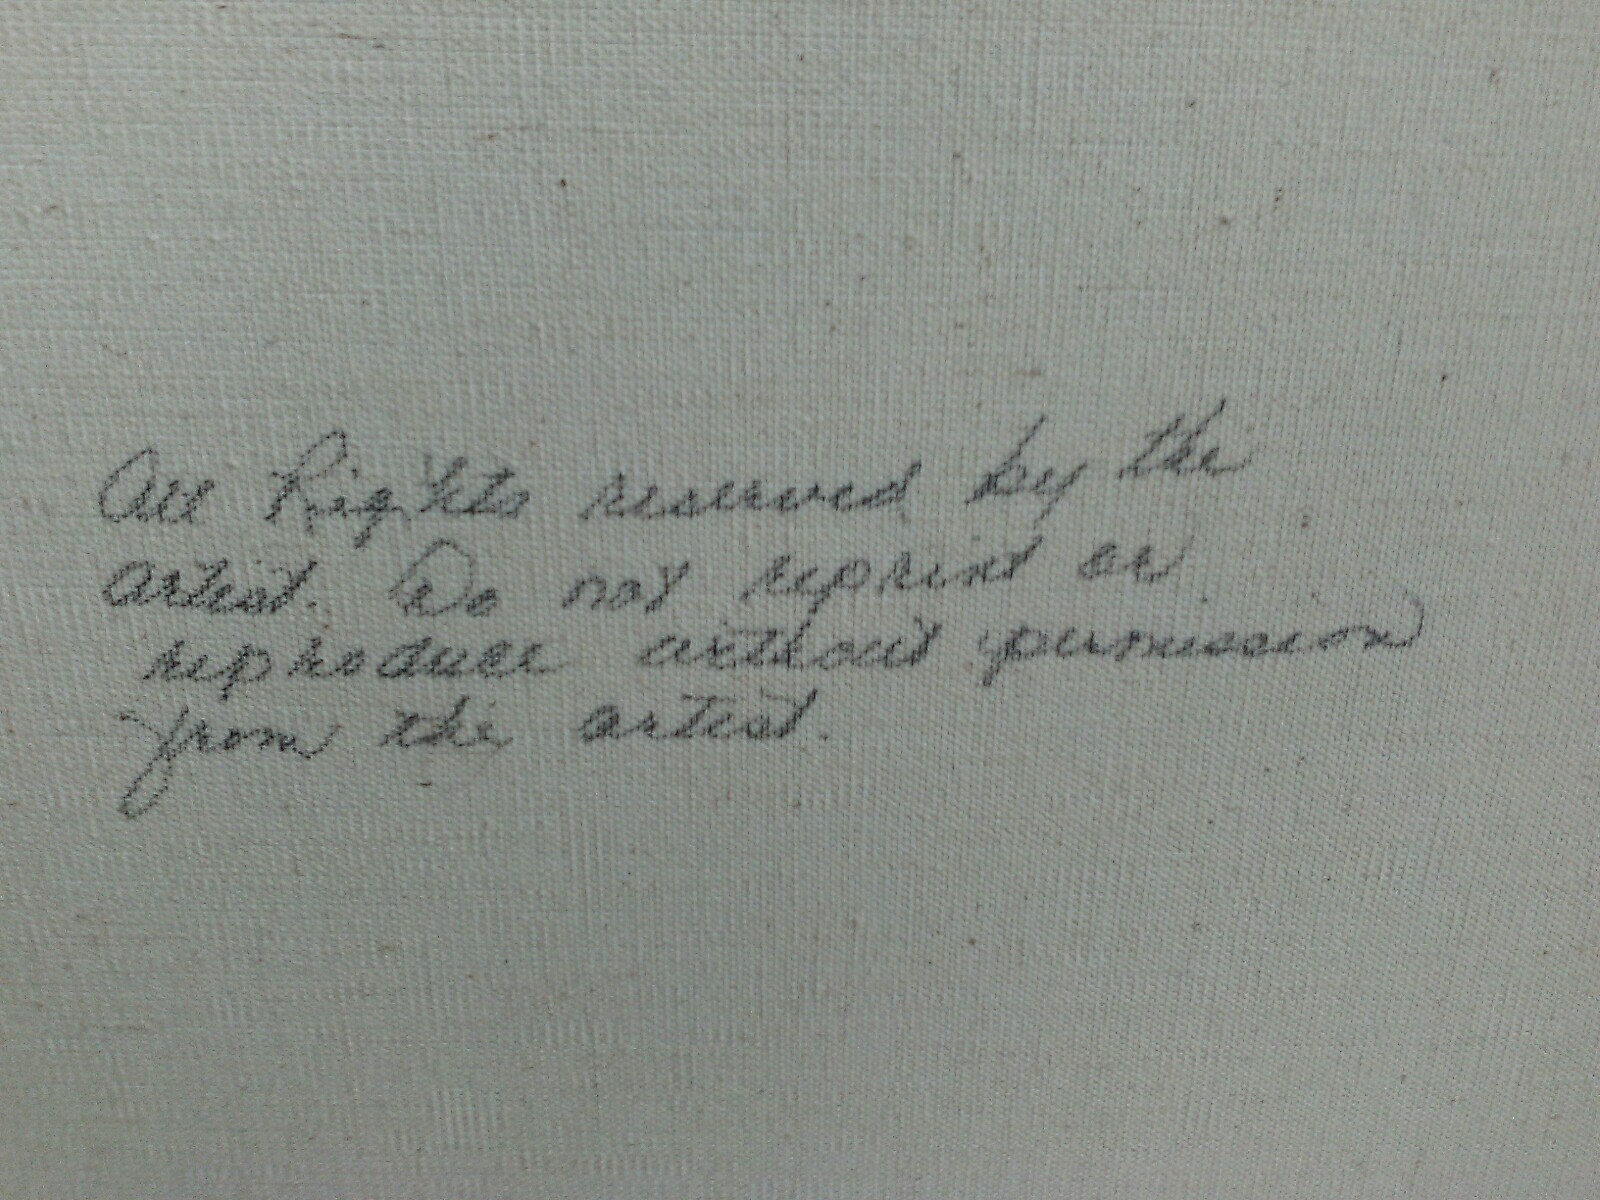 All Rights reserved by the
artist. Do not reprint or
reproduce without permission
from the artist.